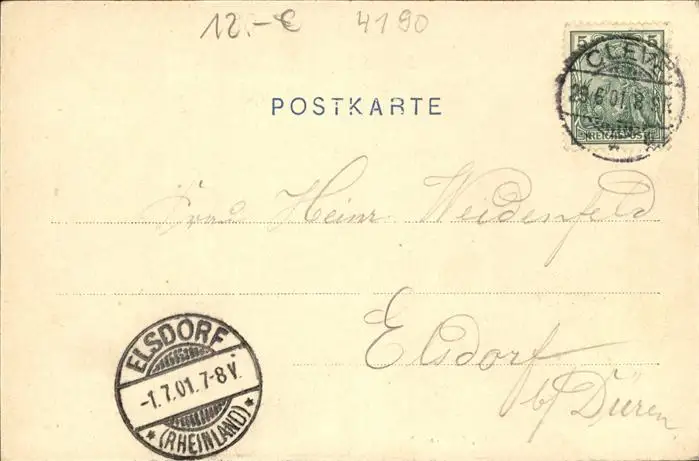 12.-€ 4190
5 5
CLEVE
29.6.01.8-9
REICHSPOST
POSTKARTE
Frau Heinr Weidenfeld
Elsdorf
b/ Düren
ELSDORF
-1.7.01.7-8V.
* (RHEINLAND) *